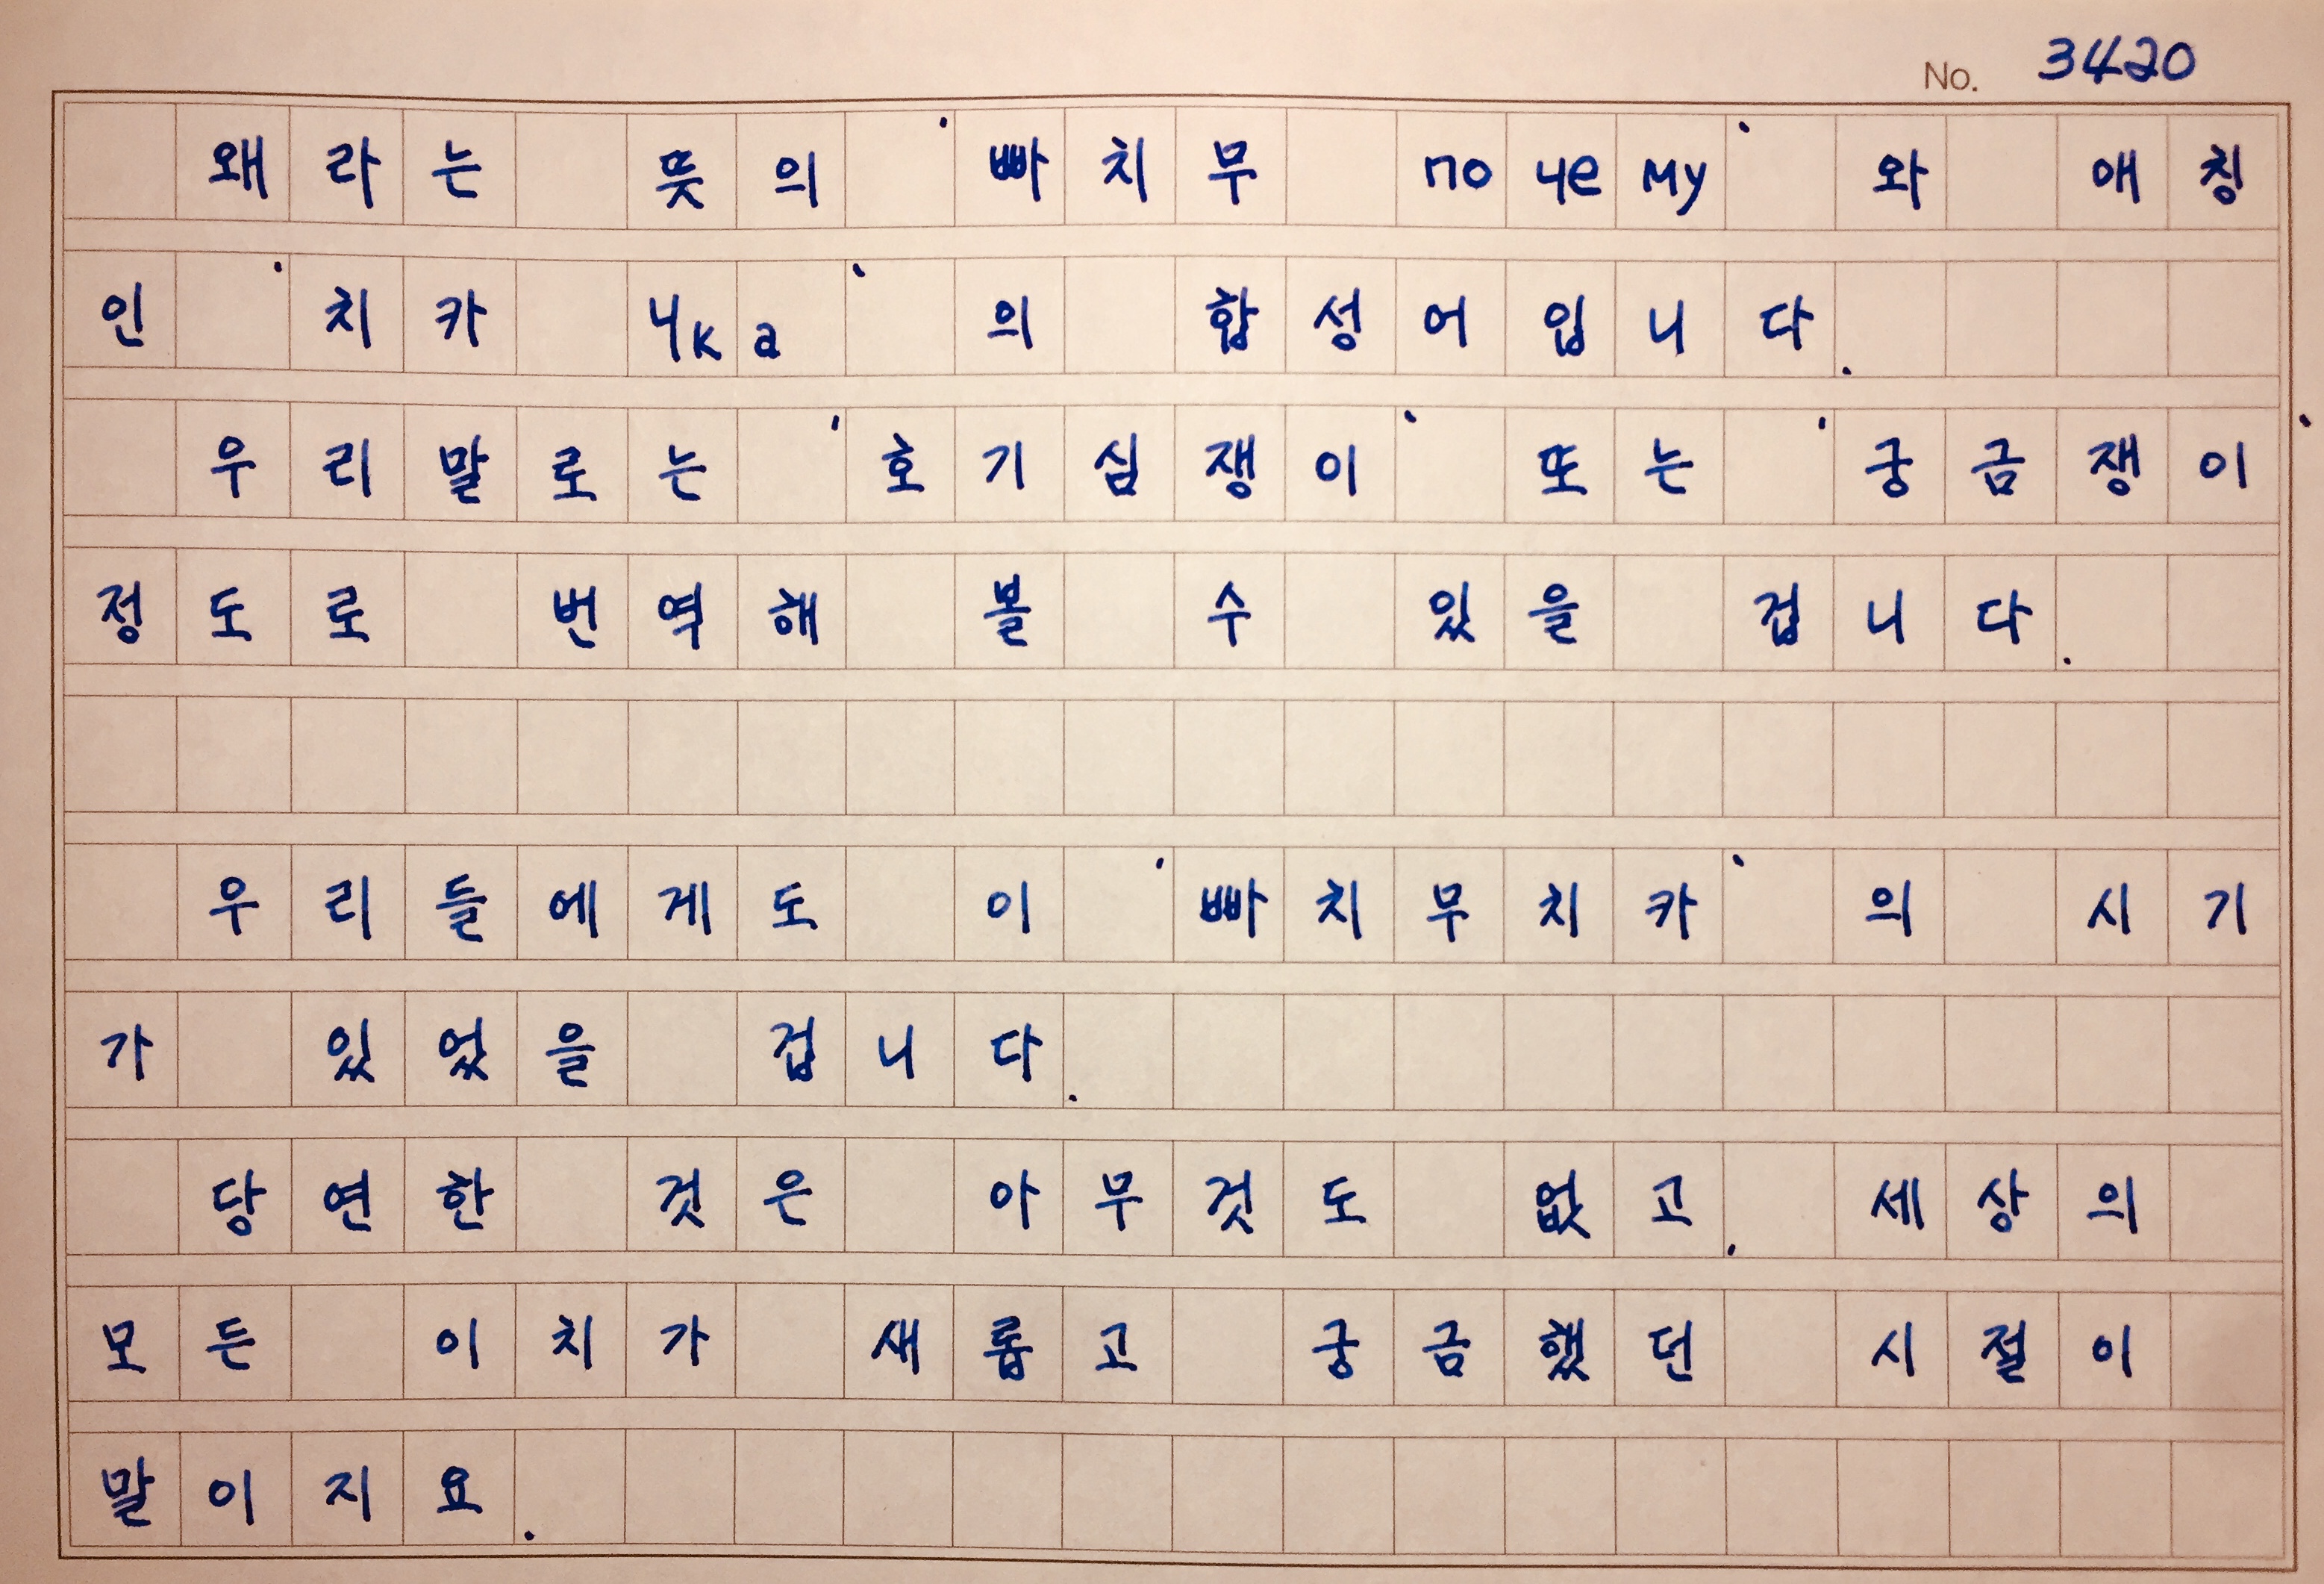 No. 3420
왜라는 뜻의 '빠치무 почему' 와 애칭
인 '치카 чка' 의 합성어입니다.
우리말로는 '호기심쟁이' 또는 '궁금쟁이'
정도로 번역해 볼 수 있을 겁니다.
우리들에게도 이 '빠치무치카' 의 시기
가 있었을 겁니다.
당연한 것은 아무것도 없고, 세상의
모든 이치가 새롭고 궁금했던 시절이
말이지요.